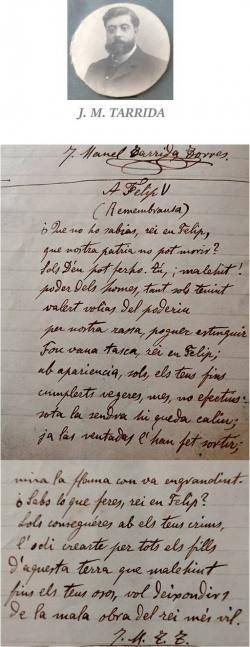 J. M. TARRIDA
J. Manel Tarrida Torres.
A Felip V
(Remembransa)
¿Que no ho sabías, rei en Felip,
que nostra patria no pot morir?
Sols Déu pot ferho. Tú, ¡malehit!
poder dels homes, tant sols tenint
valert volías del poderiu
per nostra rassa, poguer extinguir
Fou vana tasca, rei en Felip;
ab apariencia, sols, els teus fins
cumplerts vegeres, mes no efectius:
sota la sendra hi queda caliu;
ja las ventadas l'han fet sortir;
mira la flama com va engrandint.
¿Sabs lo que feres, rei en Felip?
Sols conseguires ab els teus crims,
l'odi crearte per tots els fills
d'aquesta terra que malehint
fins els teus osos, vol deixondirs
de la mala obra del rei més vil.
J. M. T. T.